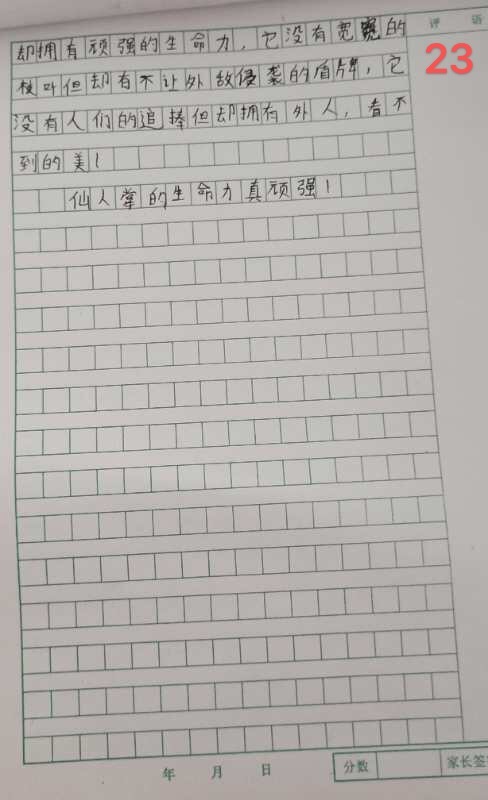 评 语
23
却拥有顽强的生命力，它没有宽宽的
枝叶但却有不让外敌侵袭的盾牌，它
没有人们的追捧但却拥有外人，看不
到的美！
仙人掌的生命力真顽强！
年 月 日
分数
家长签